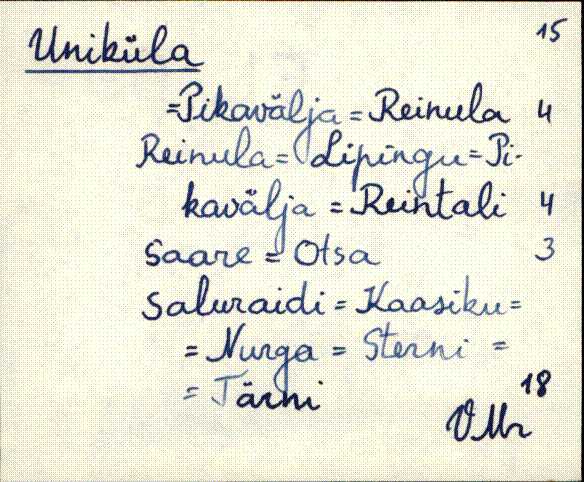 15
Uniküla
=Pikavälja = Reinula 4
Reinula = Lipingu = Pi-
kavälja = Reintali 4
Saare = Otsa 3
Saluraidi = Kaasiku =
= Nurga = Sterni =
= Tärni 18
VMr